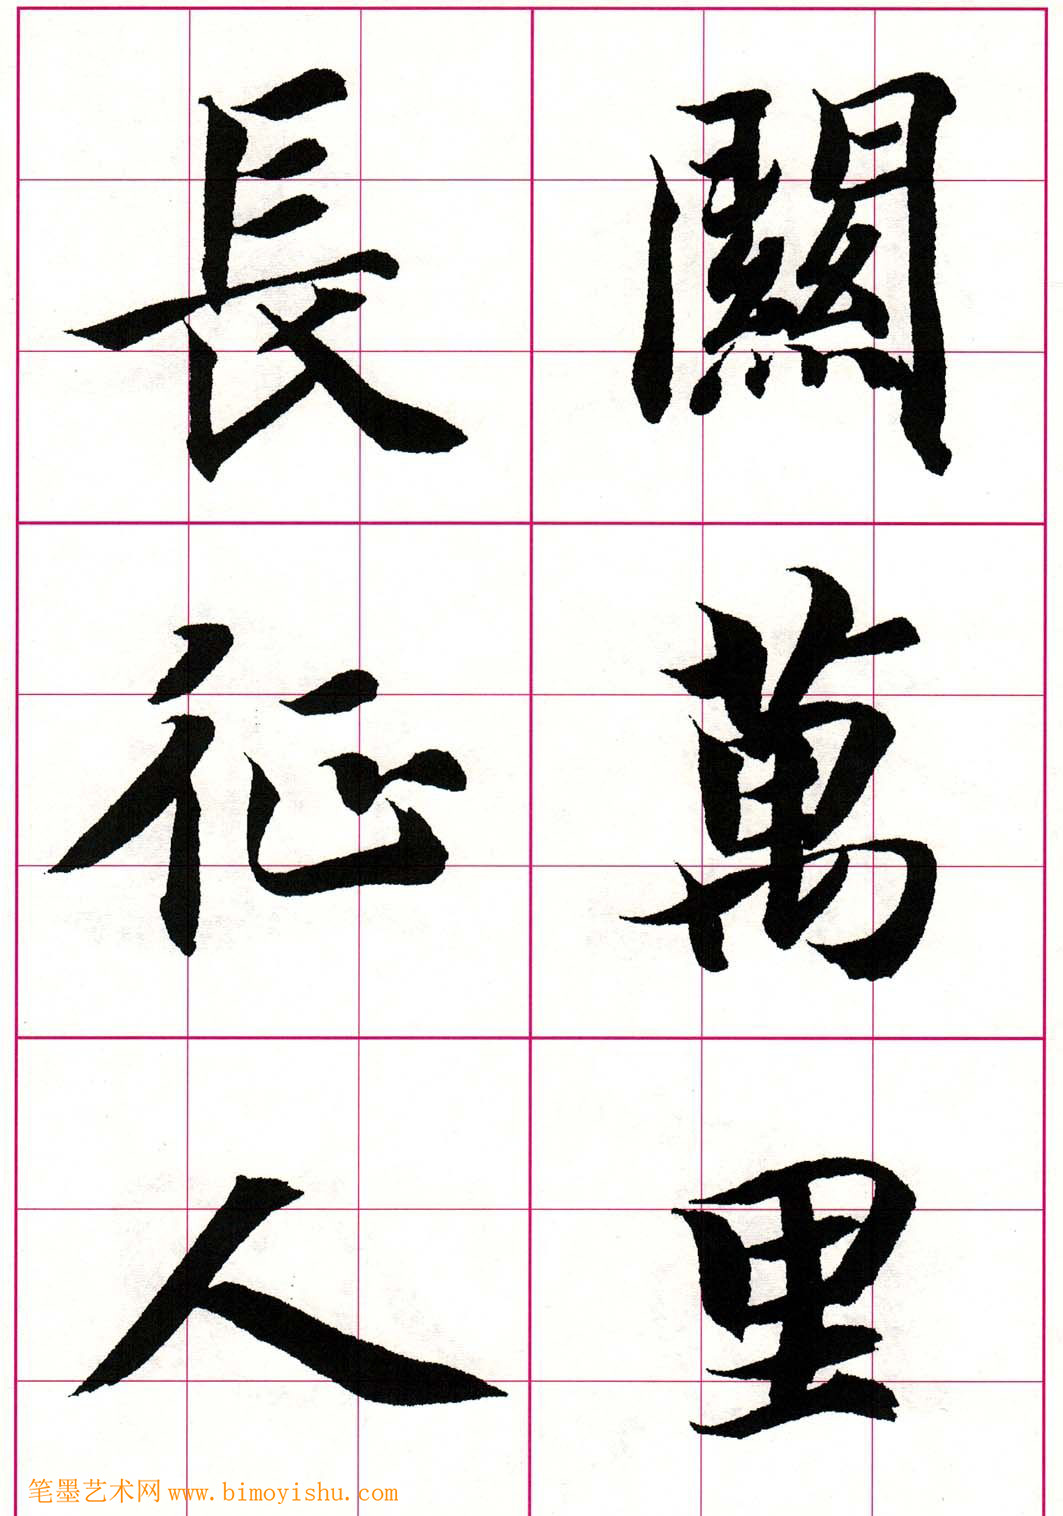 關萬里
長征人
笔墨艺术网 www.bimoyishu.com